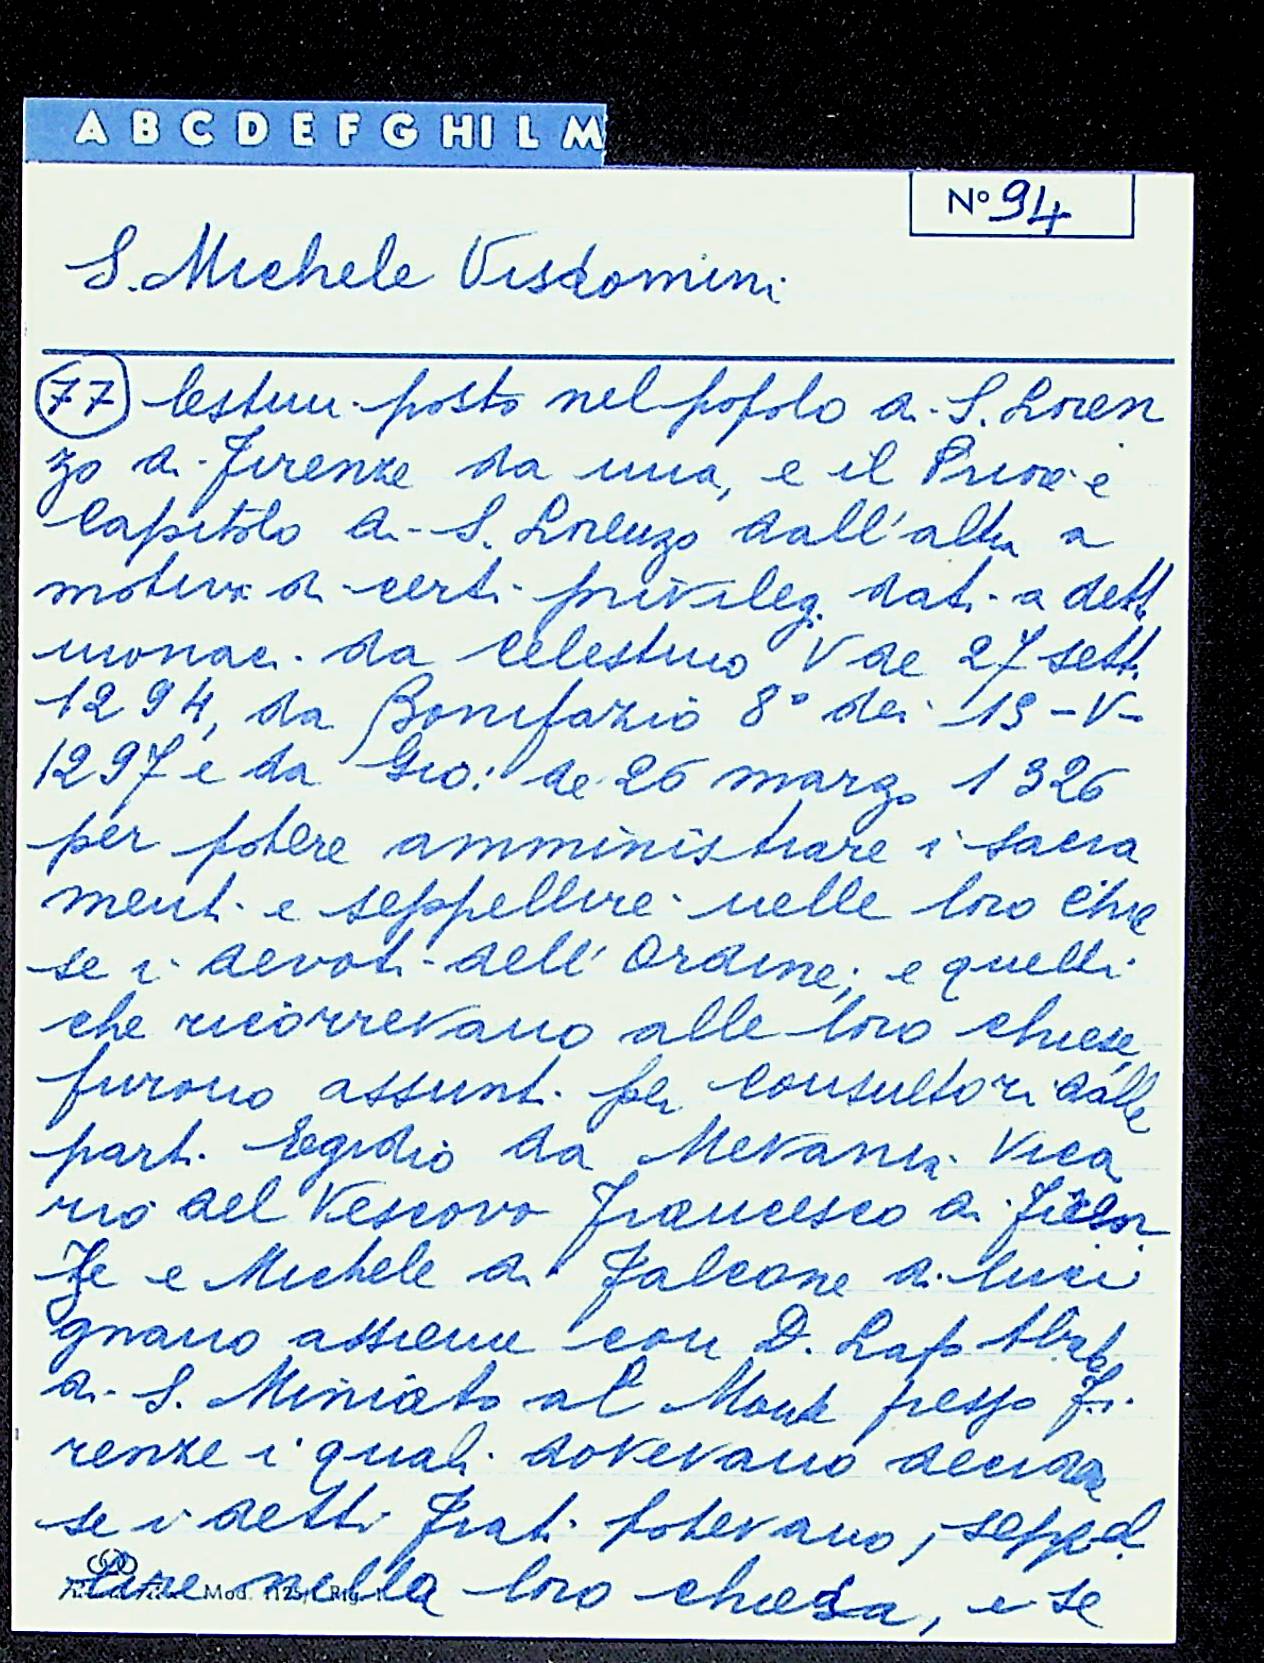 A B C D E F G HI L M
N° 94
S. Michele Visdomini
77 lestini posto nel popolo di S. Loren
zo di Firenze da una, e il Priore e
Capitolo di S. Lorenzo dall'altra a
motivo di certi privileg. dati a detti
monaci da Celestino V de 27 sett.
1294, da Bonifazio 8° dei 13-V-
1297 e da Gio: de 26 marzo 1326
per potere amministrare i sacra
menti e seppellire nelle loro chie
se i devoti dell'Ordine, e quelli
che ricorrevano alle loro chiese,
furono assunti per consultori dalle
parti Egidio da Mevania Vica
rio del Vescovo Francesco di Firen
ze e Michele di Falcone di Luci
gnano assieme con D. Lapo Abate
di S. Miniato al Monte presso Fi
renze i quali dovevano decidere
se i detti Frati potevano, seppel
lire nella loro chiesa, e se
Mod. 1125/ Rig.